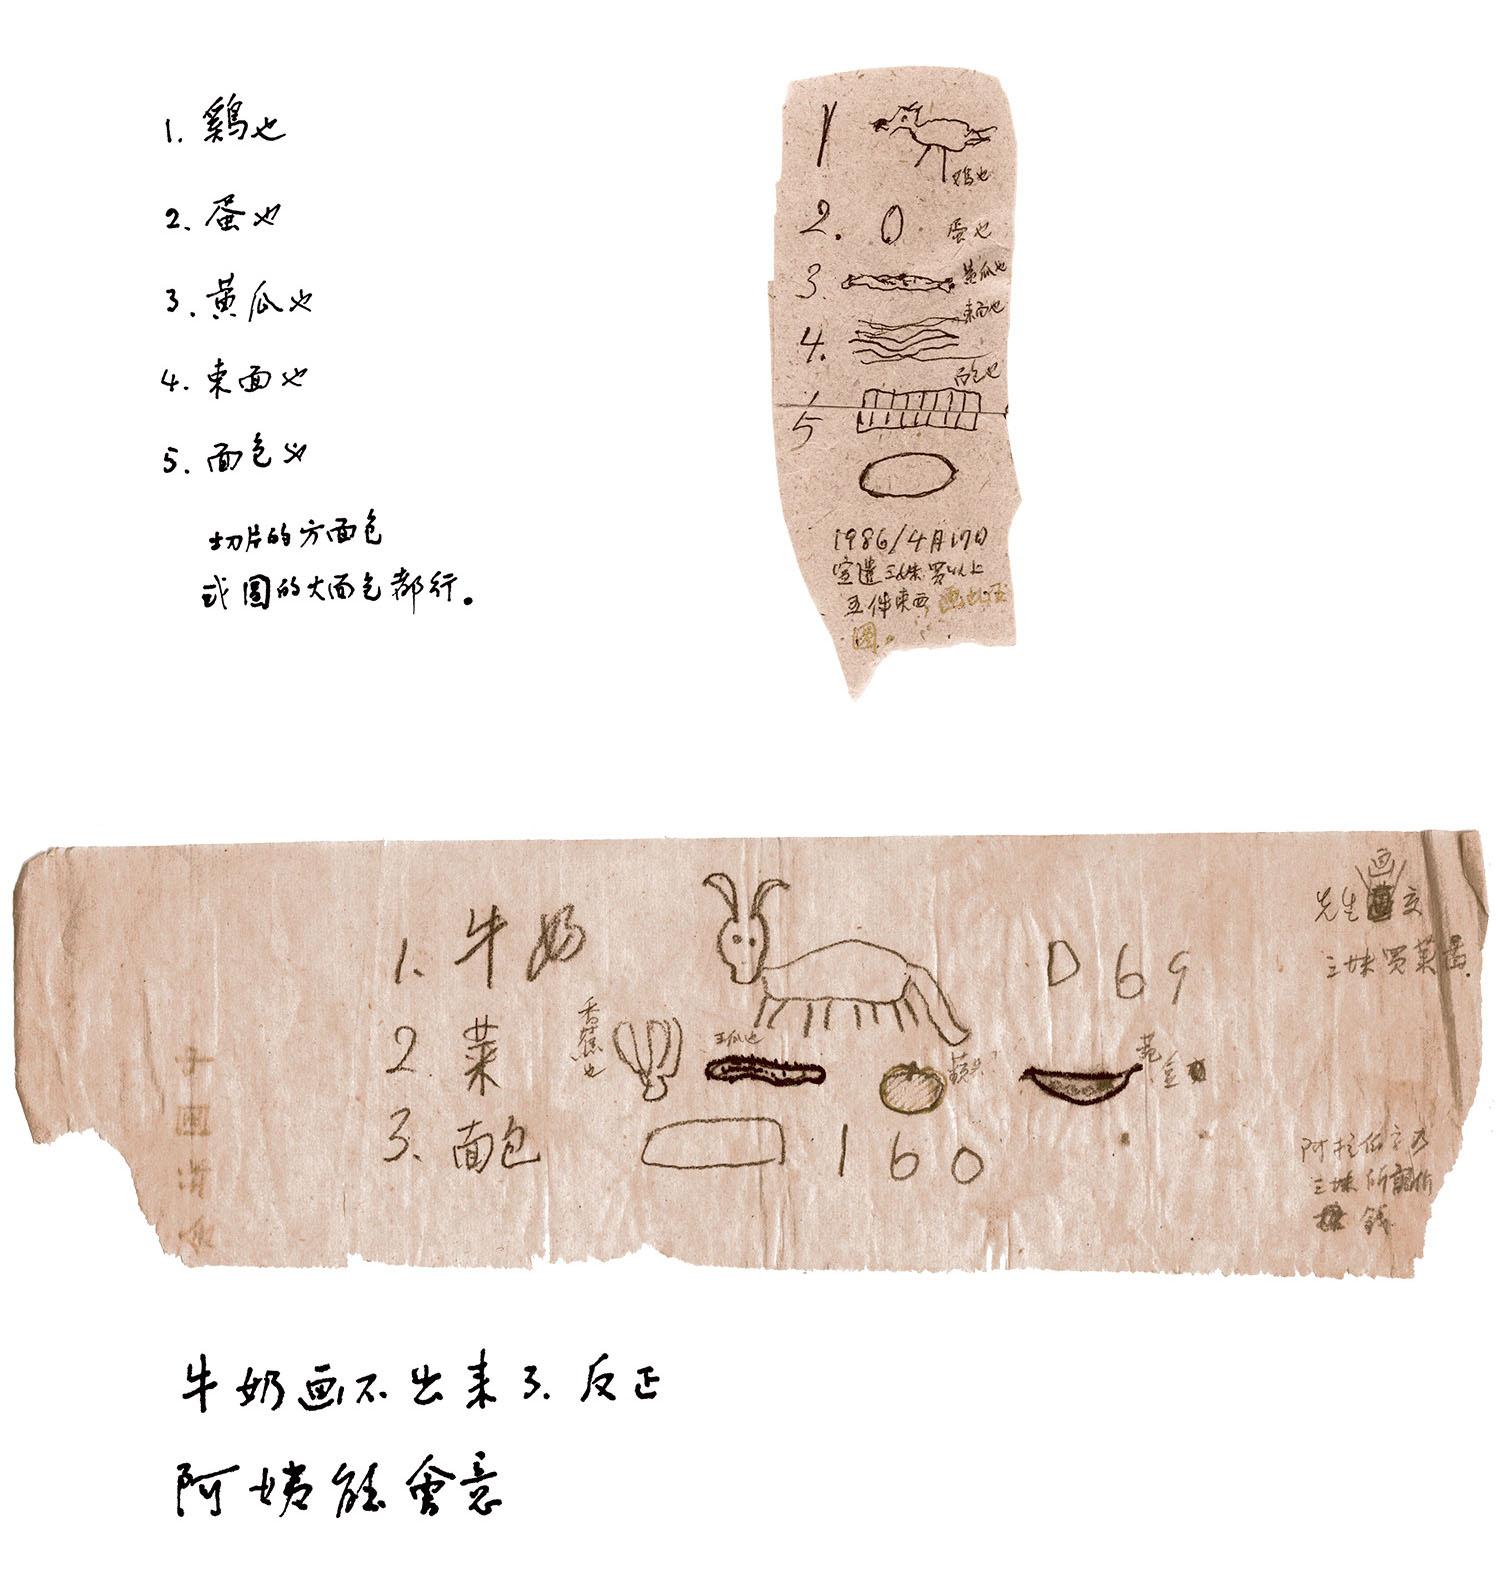 1. 鷄也
2. 蛋也
3. 黄瓜也
4. 束面也
5. 面包也
切片的方面包
或圆的大面包都行。
1
鸡也
2. 蛋也
3. 黄瓜也
4. 束面也
5 面包也
1986/4月17日
室遣三妹買以上
五件東西画此至
圖。
1. 牛奶 D69
2. 菜 香蕉也 王瓜也
3. 面包 160
先生画交
三妹買菜畵.
三妹所
錢
牛奶画不出来了.反正
阿姨能會意